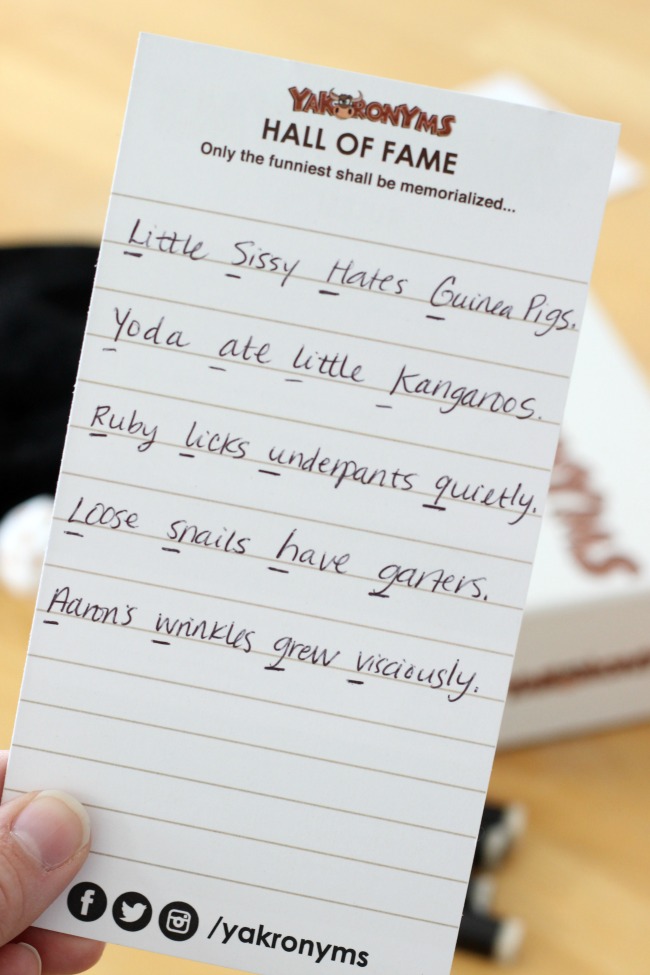 YAKRONYMS
HALL OF FAME
Only the funniest shall be memorialized...
Little Sissy Hates Guinea Pigs.
Yoda ate little Kangaroos.
Ruby licks underpants quietly.
Loose snails have garters.
Aaron's wrinkles grew visciously.
/yakronyms